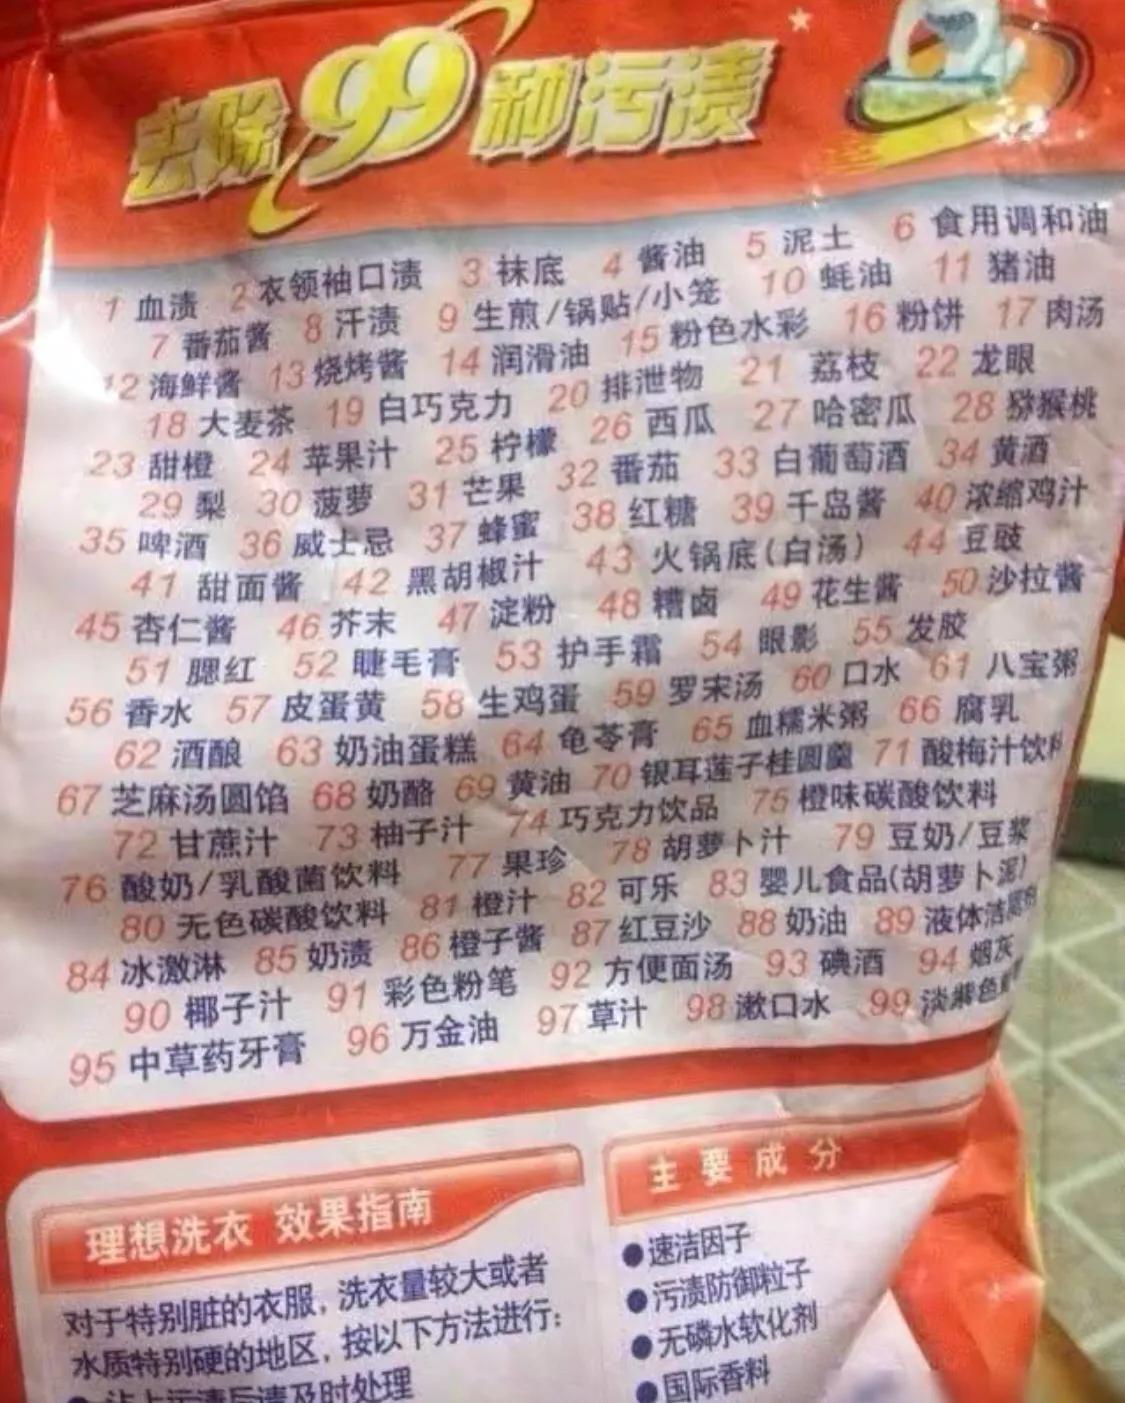 去除99种污渍
1 血渍 2 衣领袖口渍 3 袜底 4 酱油 5 泥土 6 食用调和油
7 番茄酱 8 汗渍 9 生煎/锅贴/小笼 10 蚝油 11 猪油
12 海鲜酱 13 烧烤酱 14 润滑油 15 粉色水彩 16 粉饼 17 肉汤
18 大麦茶 19 白巧克力 20 排泄物 21 荔枝 22 龙眼
23 甜橙 24 苹果汁 25 柠檬 26 西瓜 27 哈密瓜 28 猕猴桃
29 梨 30 菠萝 31 芒果 32 番茄 33 白葡萄酒 34 黄酒
35 啤酒 36 威士忌 37 蜂蜜 38 红糖 39 千岛酱 40 浓缩鸡汁
41 甜面酱 42 黑胡椒汁 43 火锅底(白汤) 44 豆豉
45 杏仁酱 46 芥末 47 淀粉 48 糟卤 49 花生酱 50 沙拉酱
51 腮红 52 睫毛膏 53 护手霜 54 眼影 55 发胶
56 香水 57 皮蛋黄 58 生鸡蛋 59 罗宋汤 60 口水 61 八宝粥
62 酒酿 63 奶油蛋糕 64 龟苓膏 65 血糯米粥 66 腐乳
67 芝麻汤圆馅 68 奶酪 69 黄油 70 银耳莲子桂圆羹 71 酸梅汁饮料
72 甘蔗汁 73 柚子汁 74 巧克力饮品 75 橙味碳酸饮料
76 酸奶/乳酸菌饮料 77 果珍 78 胡萝卜汁 79 豆奶/豆浆
80 无色碳酸饮料 81 橙汁 82 可乐 83 婴儿食品(胡萝卜泥)
84 冰激淋 85 奶渍 86 橙子酱 87 红豆沙 88 奶油 89 液体洁
90 椰子汁 91 彩色粉笔 92 方便面汤 93 碘酒 94 烟灰
95 中草药牙膏 96 万金油 97 草汁 98 漱口水 99 淡紫色
理想洗衣 效果指南
对于特别脏的衣服，洗衣量较大或者
水质特别硬的地区，按以下方法进行：
●沾上污渍后请及时处理
主要成分
●速洁因子
●污渍防御粒子
●无磷水软化剂
●国际香料